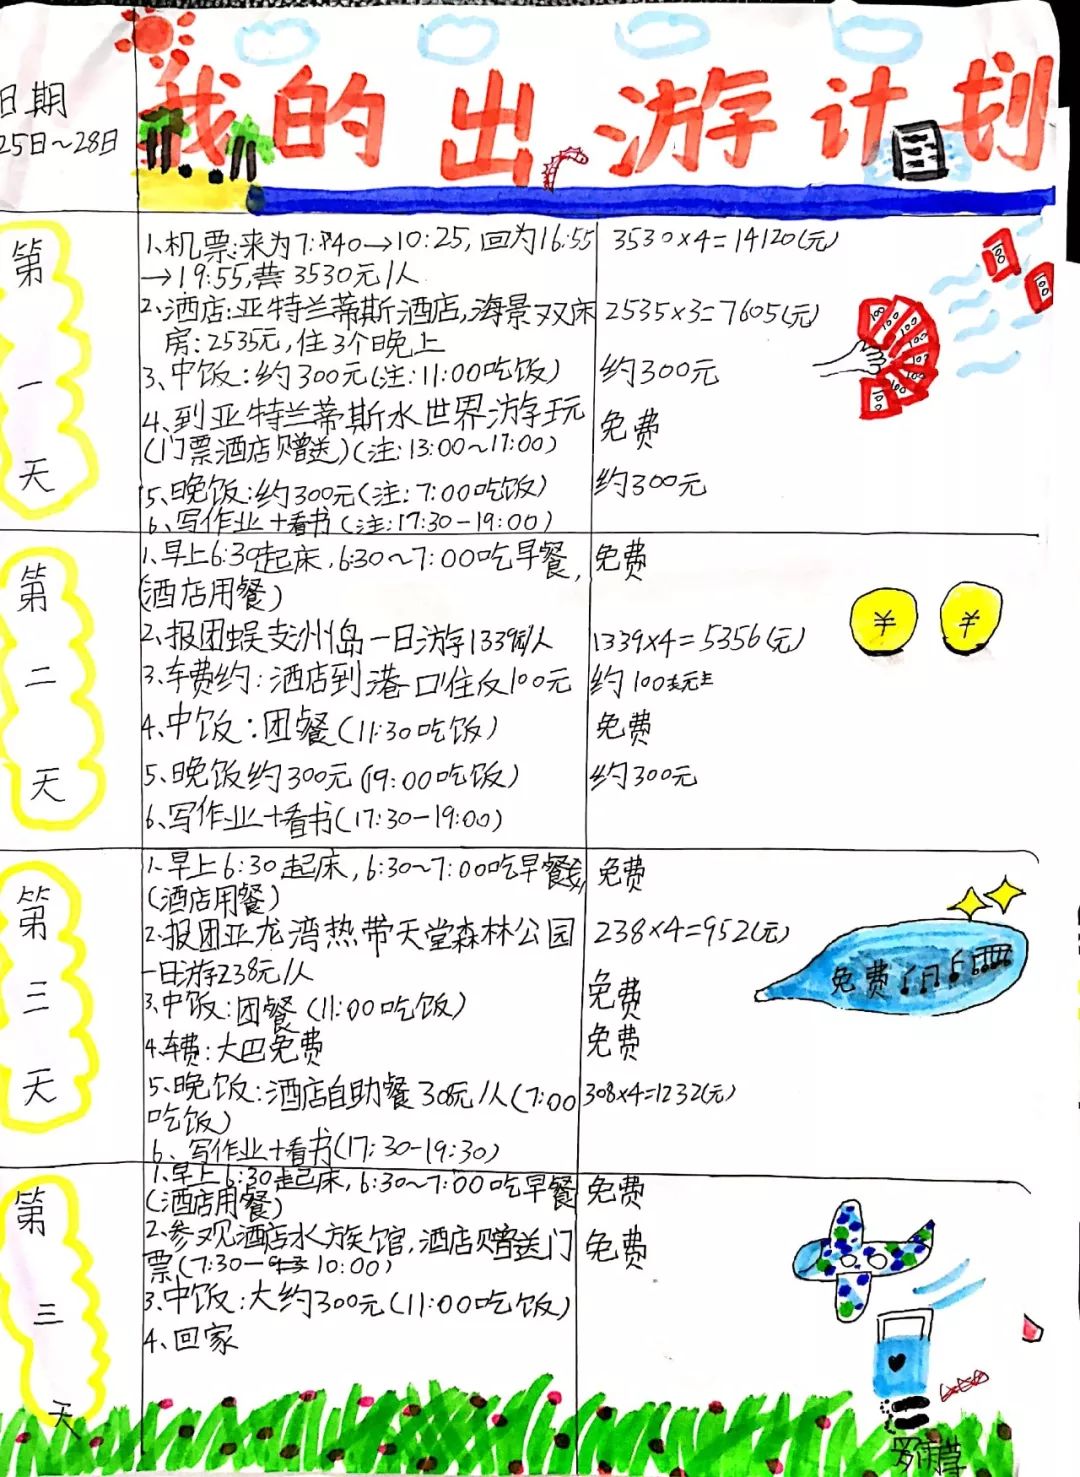 我的出游计划
日期
25日~28日
第一天
1、机票:来为7:40→10:25,回为16:55
→19:55,共3530元/人
3530×4=14120(元)
2、酒店:亚特兰蒂斯酒店,海景双床
房:2535元,住3个晚上
2535×3=7605(元)
3、中饭:约300元(注:11:00吃饭)
约300元
4、到亚特兰蒂斯水世界游玩
(门票酒店赠送)(注:13:00~17:00)
免费
5、晚饭:约300元(注:7:00吃饭)
约300元
6、写作业+看书(注:17:30-19:00)
100
100
100
100
100
100
100
100
第二天
1、早上6:30起床,6:30~7:00吃早餐,
(酒店用餐)
免费
2、报团蜈支洲岛一日游1339元/人
1339×4=5356(元)
3、车费约:酒店到港口住反100元
约100元
4、中饭:团餐(11:30吃饭)
免费
5、晚饭约300元(19:00吃饭)
约300元
6、写作业+看书(17:30-19:00)
¥
¥
第三天
1、早上6:30起床,6:30~7:00吃早餐
(酒店用餐)
免费
2、报团亚龙湾热带天堂森林公园
一日游238元/人
238×4=952(元)
3、中饭:团餐(11:00吃饭)
免费
4、车费:大巴免费
免费
5、晚饭:酒店自助餐308元/人(7:00
吃饭)
308×4=1232(元)
6、写作业+看书(17:30-19:30)
免费
第三天
1、早上6:30起床,6:30~7:00吃早餐
(酒店用餐)
免费
2、参观酒店水族馆,酒店赠送门
票(7:30-10:00)
免费
3、中饭:大约300元(11:00吃饭)
4、回家